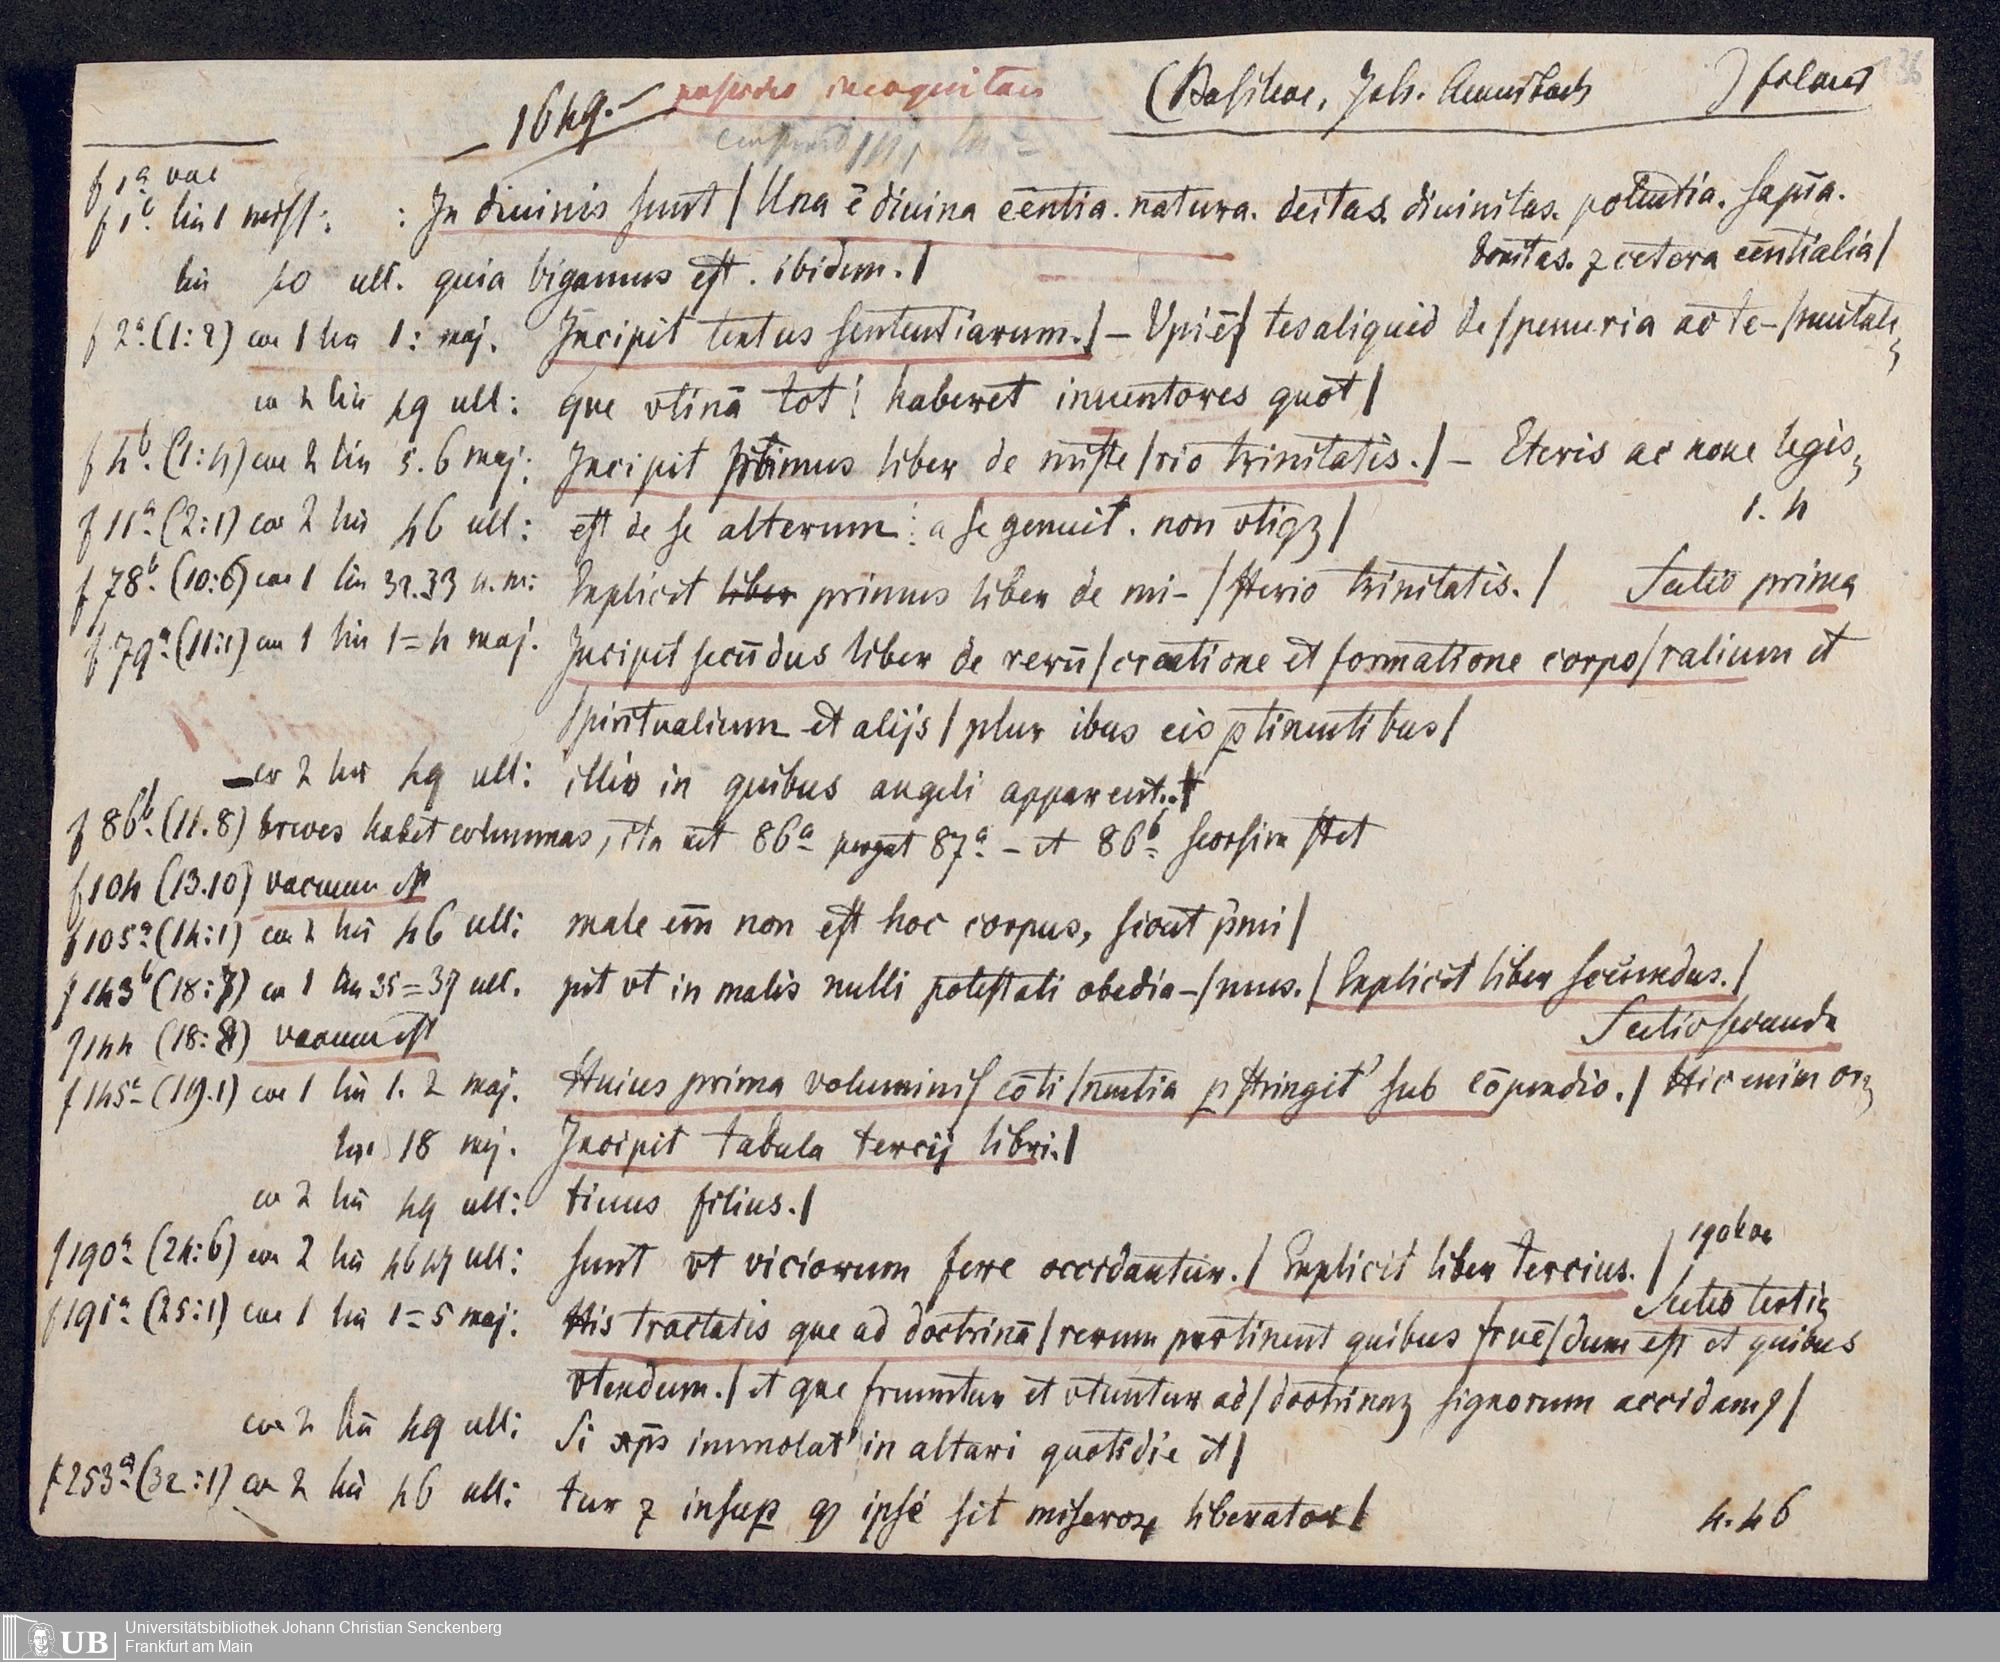 1649. (Basileae, Joh. Amerbach ) folans
f 1ᵃ vac
f 1ᵇ. lin 1 : In diuinis sunt / Una ē diuina eēntia. natura. deitas. diuinitas. potentia. sapīa.
bonitas. ⁊ cetera eēntialia /
lin 40 ult. quia bigamus est. ibidem. /
f 2ᵃ. (1:2) co 1 lin 1: maj. Incipit textus sententiarum. / – Upiē / tes aliquid de / penuria ac te- /
co 2 lin 49 ult: que vtinā tot / haberet inuentores quot /
f 4ᵇ. (1:4) co 2 lin 5. 6 maj: Incipit primus liber de miste / rio trinitatis. / – Eteris ac noue legis
1. 4
f 11ᵃ (2:1) co 2 lin 46 ult: est de se alterum : a se genuit. non vtiqꝫ /
f 78ᵇ. (10:6) co 1 lin 32.33 u. m: Explicit liber primus liber de mi- / sterio trinitatis. / Sectio prima
f 79ᵃ. (11:1) co 1 lin 1=4 maj. Incipit secūdus liber de rerū / creatione et formatione corpo / ralium et
spiritualium et alijs / plur ibus eis ꝑtinentibus /
co 2 lin 49 ult: illis in quibus angeli apparent. /
f 86ᵇ. (11.8) breves habet columnas, ita ut 86ᵃ pergat 87ᵃ – et 86ᵇ seorsim stet
f 104 (13.10) vacuum est
f 105ᵃ (14:1) co 2 lin 46 ult: male em̄ non est hoc corpus, sicut pⁱmi /
f 143ᵇ (18:7) co 1 lin 35=37 ult. pit vt in malis nulli potestati obedia- / mus. / Explicit liber secundus. /
f 144 (18:8) vacuum est Sectio secunda
f 145ᵃ (19.1) co 1 lin 1. 2 maj. Huius prima voluminis cōti / nentia ꝑstringit' sub cōpendio. / Hic enim
lin 18 maj. Incipit tabula tercij libri. /
co 2 lin 49 ult: timus filius. /
f 190ᵃ (24:6) co 2 lin 46 47 ult: sunt vt viciorum fere occidantur. / Explicit liber tercius. /
Sectio tertia
f 191ᵃ (25:1) co 1 lin 1=5 maj: His tractatis que ad doctrinā / rerum pertinent quibus fruē / dum est et quibus
vtendum. / et que fruuntur et vtuntur ad / doctrinaꝫ signorum accidamꝰ /
co 2 lin 49 ult: Si xp̄s immolat' in altari quotidie et /
f 253ᵃ (32:1) co 2 lin 46 ult: tur ⁊ insuꝑ ꝙ ipse sit miseroꝝ liberator /
4. 46
Universitätsbibliothek Johann Christian Senckenberg
UB Frankfurt am Main